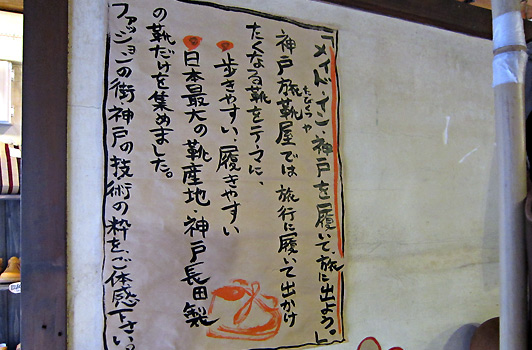 「メイド・イン・神戸を履いて、旅に出よう。」
神戸旅靴屋では、旅行に履いて出かけ
たびくつや
たくなる靴をテーマに、
歩きやすい、履きやすい
日本最大の靴産地・神戸長田製
の靴だけを集めました。
ファッションの街神戸の技術の粋を、ご体感下さい。